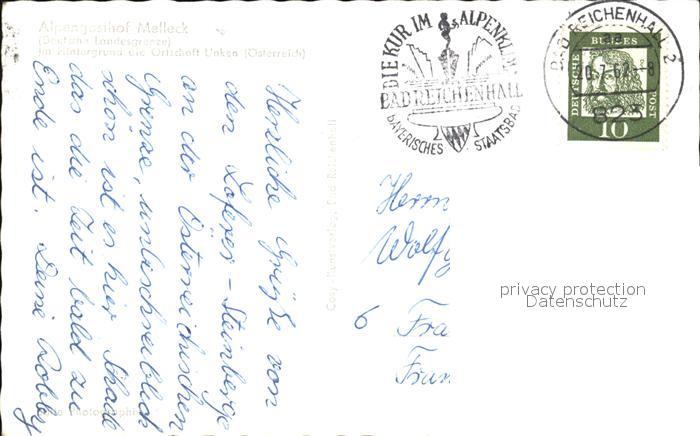 Alpengasthof Melleck
(Deutsche Landesgrenze)
im Hintergrund die Ortschaft Unken (Österreich)
Herzliche Grüße von
den Loferer-Steinberge
an der Österreichischen
Grenze, unbeschreiblich
schön ist es hier. Schade
das die Zeit bald zu
Ende ist. Deine Bobby
Photographie
Cosy-Kunstverlag, Bad Reichenhall
DIE KUR IM ALPENKLIMA
BAD REICHENHALL
BAYERISCHES STAATSBAD
BAD REICHENHALL 2
823
DEUTSCHE BUNDESPOST
10
Herrn
Wolfg
6 Fra
Fran
privacy protection
Datenschutz